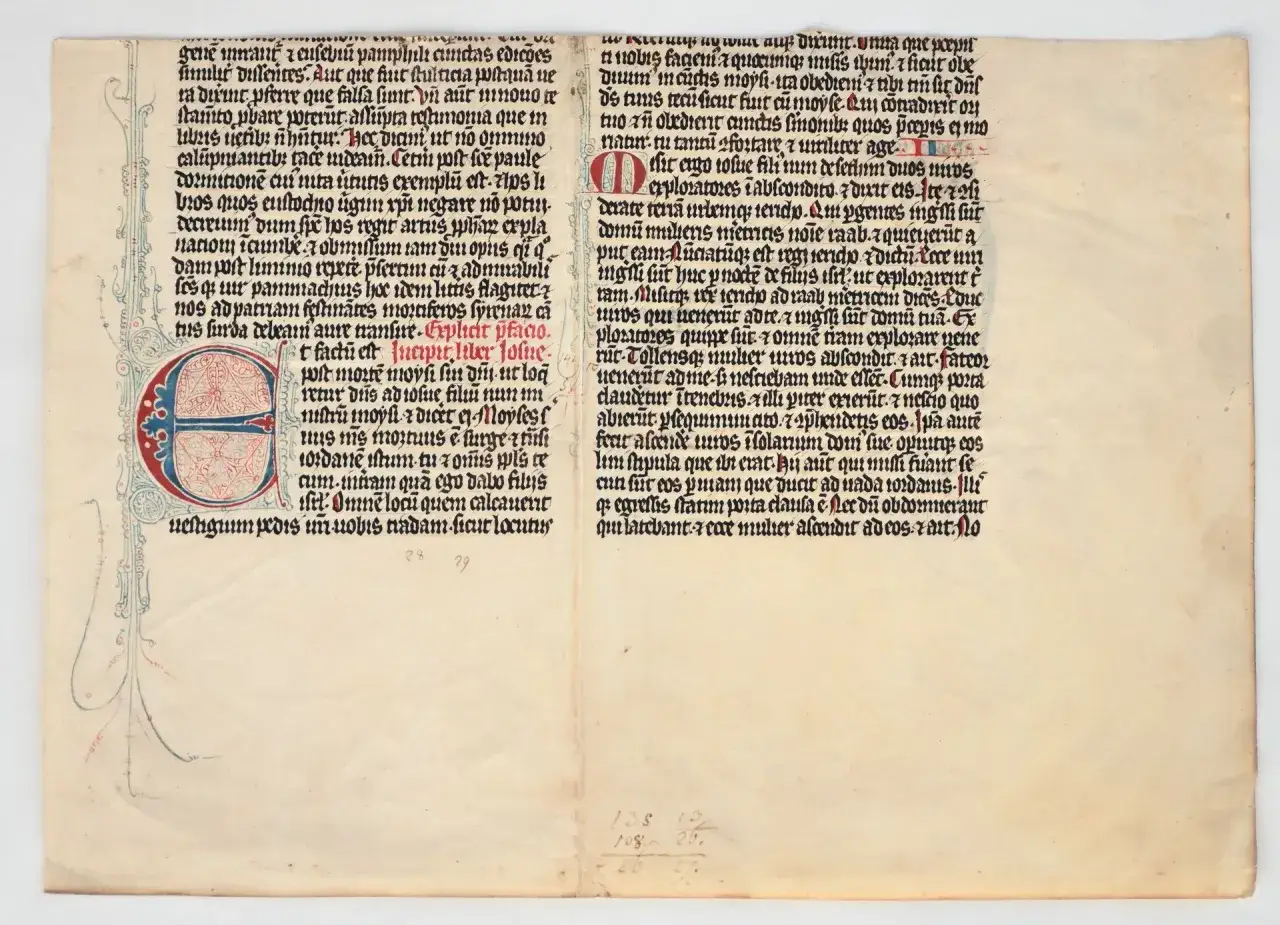 genē
similit dissentes. Aut que fuit stulticia postquā ue
ra dixint pferre que falsa sunt. Vn̄ aut in nouo te
stam̄to pbare poterūt assūpta testimonia que in
libris uetibȝ n̄ hn̄tur. Hec dicim ut nō omnino
calūpniantibȝ tace uideam. Cetm post sc̄e paule
dormitionē cuī uita v̄tutis exemplū est. ⁊ hos li
bros quos eustochio ūgim xp̄i negare nō potui.
decreuim dum sps̄ hos regit artus pphaȝ expla
nationi īcumbē. ⁊ obmissum iam diu opus
dam post liminio repetē. psertim cū ⁊ admirabili
sēs q; uir pammachius hoc idem littis flagitet. ⁊
nos ad patriam festinātes mortiferos syrenaȝ cā
tus surda debeam aure transire. Explicit pfacio.
t factū est Incipit liber Iosue.
post mortē moysi sui dn̄i. ut loq
retur dn̄s ad iosue filiū nun mi
nistrū moysi. ⁊ dicet ei. Moyses s
uus ms̄ mortuus ē. surge ⁊ tn̄si
iordanē istum. tu ⁊ om̄is ppls te
cum. in tram quā ego dabo filijs
isrl̄. Omnē locū quem calcauerit
uestigium pedis urī. uobis tradam. sicut locutus
28 29
ad iosue atq; dixerunt. Omia que pcepis
ti nobis faciem. ⁊ quocumq; misis ibim. ⁊ sicut obe
diuim in cūctis moysi. ita obediem ⁊ tibi. tm̄ sit dn̄s
ds̄ tuus tecū sicut fuit cū moyse. Qui cōtradixit ori
tuo ⁊ n̄ obedierit cunctis smonibȝ quos pcepis ei mo
riatur. tu tantū ꝯfortare ⁊ uiriliter age. II
Misit ergo iosue fili nun de sethim duos uiros
exploratores ī abscondito. ⁊ dixit eis. Ite ⁊ ꝯsi
derate terrā urbemq; iericho. Qui pgentes ingssi sūt
domū mulieris metricis noīe raab. ⁊ quieuerūt a
put eam. Nūciatūq; est regi iericho. ⁊ dictū. Ecce uiri
ingssi sūt huc p noctē de filijs isrl̄. ut explorarent t̄
ram. Misitq; rex iericho ad raab metricem dicēs. Educ
uiros qui uenerūt ad te. ⁊ ingssi sūt domū tuā. Ex
ploratores quippe sūt. ⁊ omnē tram explorare uene
rūt. Tollensq; mulier uiros abscondit. ⁊ ait. Fateor
uenerūt ad me. sȝ nesciebam unde essēt. Cumq; porta
claudetur ī tenebris. ⁊ illi piter exierūt. ⁊ nescio quo
abierūt. psequimini cito. ⁊ ꝯphendetis eos. Ipa autē
fecit ascende uiros ī solarium dom sue. opuitq; eos
lini stipula que ibi erat. Hij aūt qui missi fuāt se
cuti sūt eos p uiam que ducit ad uada iordanis. Illi
q; egressis statim porta clausa ē. Nec dū obdormierant
qui latebant. ⁊ ecce mulier ascendit ad eos. ⁊ ait. No
135 13
108 25.